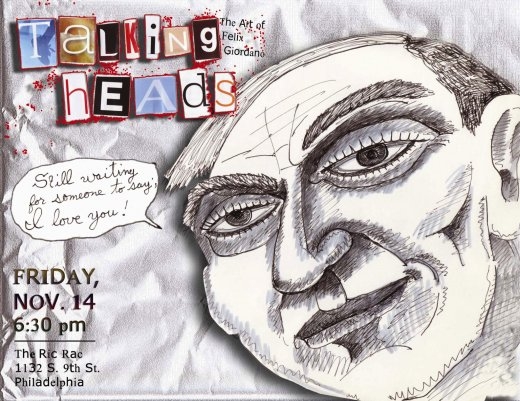 Talking
heads
The Art of
Felix
Giordano
Still waiting
for someone to say;
I love you!
FRIDAY,
NOV. 14
6:30 pm
The Ric Rac
1132 S. 9th St.
Philadelphia